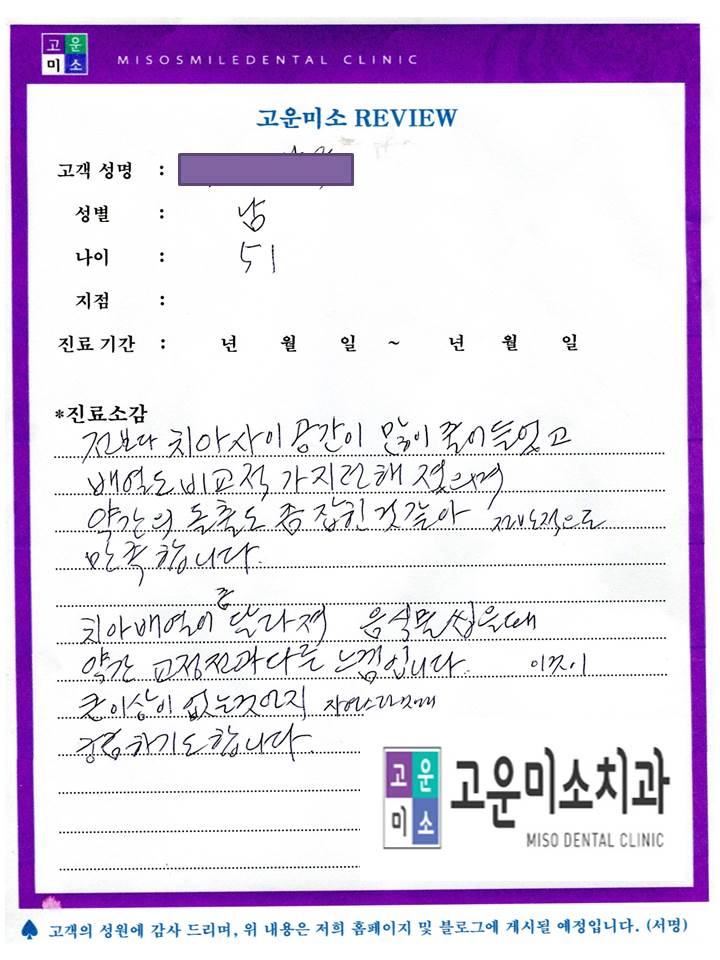 고운
미소
MISOSMILEDENTAL CLINIC
고운미소 REVIEW
고객 성명 :
성별 : 남
나이 : 51
지점 :
진료 기간 : 년 월 일 ~ 년 월 일
*진료소감
전보다 치아사이 공간이 많이 줄어 들었고
배열도 비교적 가지런해 졌으며
약간의 돌출도 좀 잡힌것 같아 전반적으로
만족합니다.
좀
치아배열이 달라져 음식물 씹을때
약간 교정전과 다른 느낌입니다. 이것이
큰 이상이 없는것인지
하기도 합니다.
고운
미소
고운미소치과
MISO DENTAL CLINIC
고객의 성원에 감사 드리며, 위 내용은 저희 홈페이지 및 블로그에 게시될 예정입니다. (서명)